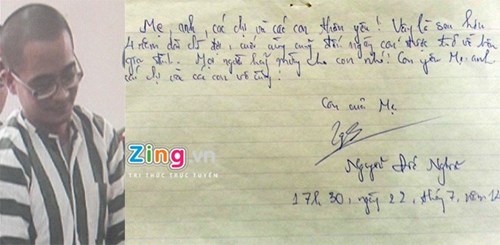 Mẹ, anh, các chị và các con thân yêu! Vậy là sau hơn
4 năm dài chờ đợi, cuối cùng cũng tới ngày con được trở về bên
gia đình. Mọi người hãy mừng cho con nhé! Con yêu Mẹ, anh
các chị và các con vô cùng!
Con của Mẹ
Zing.vn
TRI THỨC TRỰC TUYẾN
Nguyễn Đức Nghĩa
17h 30, ngày 22, tháng 7, năm 14